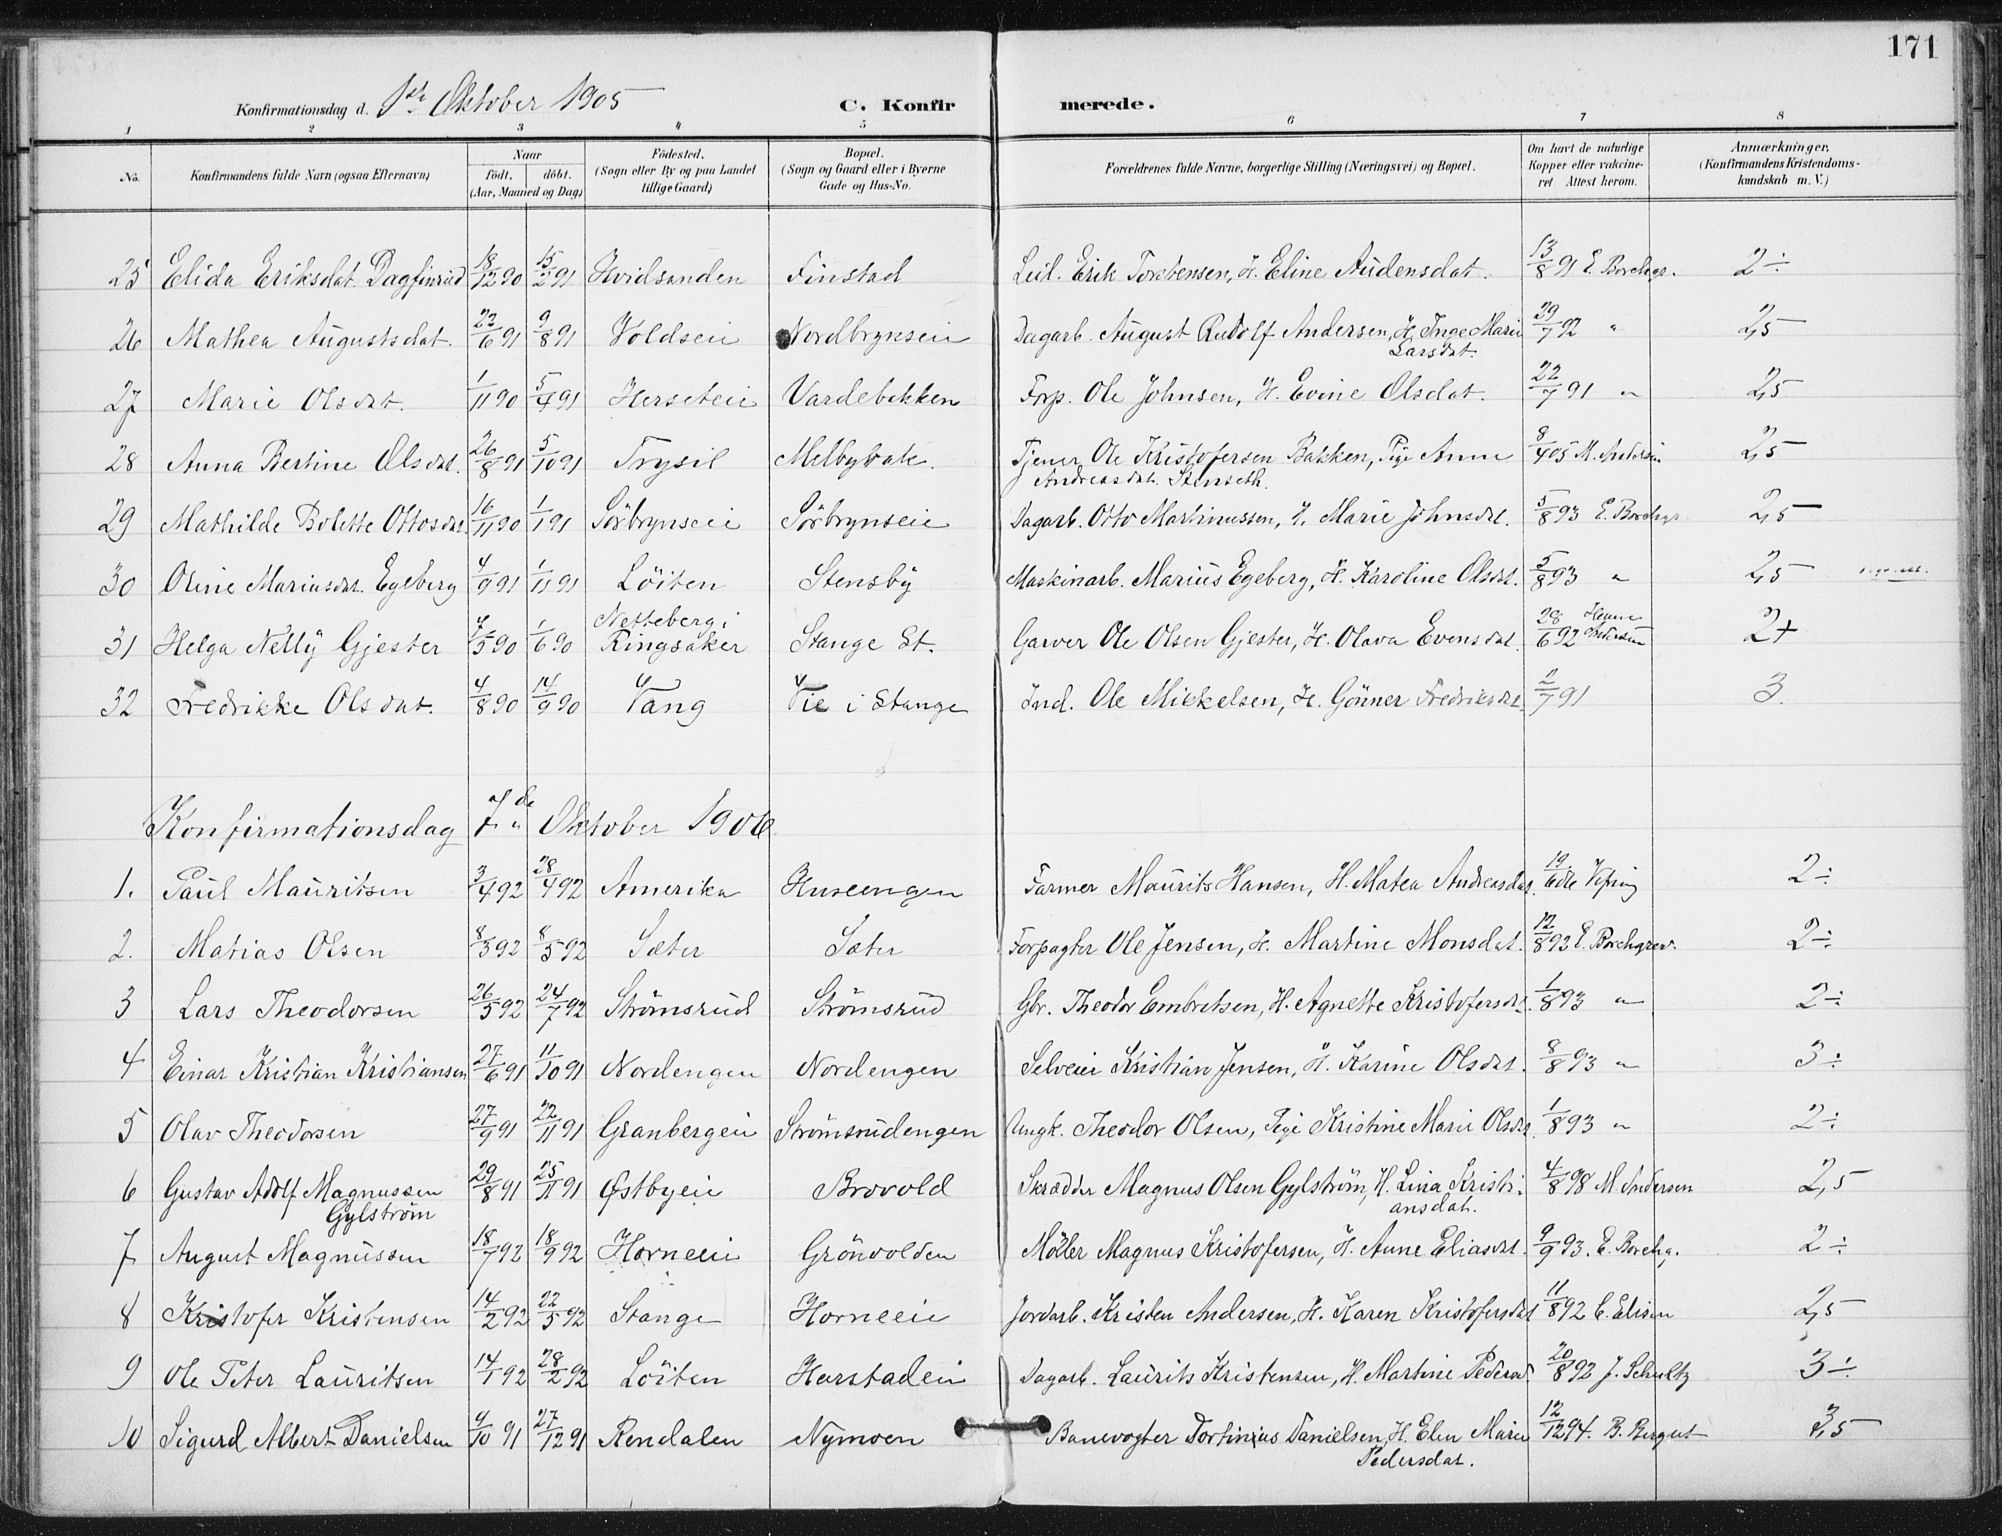 171
Konfirmationsdag d. 1ste Oktober 1905 C. Konfirmerede.
1 2 3 4 5 6 7 8
No. Konfirmandens fulde Navn (ogsaa Efternavn) Naar födt. döbt. (Aar, Maaned og Dag) Födested. (Sogn eller By og paa Landet tillige Gaard) Bopæl. (Sogn og Gaard eller i Byerne Gade og Hus-No. Forældrenes fulde Navne, borgerlige Stilling (Næringsvei) og Bopæl. Om havt de naturlige Kopper eller vakcineret. Attest herom. Anmærkninger. (Konfirmandens Kristendomskundskab m. V.)
25 Elida Eriksdat. Dagfinrud 18/12 90 15/2 91 Hvidsanden Finstad Leil. Erik Torstensen, H. Eline Audensdat. 13/8 91 E. Borchgr. 2÷
26 Mathea Augustsdat. 23/6 91 9/8 91 Voldseie Nordbrynseie Dagarb. August Rudolf Andersen, H. Inge Marie Larsdat. 29/7 92 " 2,5
27 Marie Olsdat. 1/11 90 5/4 91 Herseteie Vardebekken Forp. Ole Johnsen, H. Evine Olsdat. 22/7 91 " 2,5
28 Anna Bertine Olsdat. 26/8 91 5/10 91 Trysil Melbybak. Tjener Ole Kristofersen Bakken, Pige Anne Andreasdat. Stenseth. 8/4 05 M. Andersen 2,5
29 Mathilde Bolette Ottosdat. 16/11 90 1/1 91 Sörbrynseie Sörbrynseie Dagarb. Otto Martinussen, H. Marie Johnsdat. 5/8 93 E. Borchgr. 2,5
30 Oline Mariusdat. Egeberg 4/9 91 1/11 91 Löiten Stensby Maskinarb. Marius Egeberg, H. Karoline Olsdat. 5/8 93 " 2,5
31 Helga Nelly Gjester 7/5 90 1/6 90 Netteberg i Ringsaker Stange St. Garver Ole Olsen Gjester, H. Olava Evensdat. 28/6 92 Andersen 2+
32 Fredrikke Olsdat. 4/8 90 14/9 90 Vang Vie i Stange Ind. Ole Mikkelsen, H. Gönner Fredriksdat. 2/7 91 3.
Konfirmationsdag 7de Oktober 1906
1. Paul Mauritsen 3/4 92 28/4 92 Amerika Huseengen Farmer Maurits Hansen, H. Matea Andreasdat. 19/6 2÷
2. Matias Olsen 8/3 92 8/5 92 Sæter Sæter Forpagter Ole Jensen, H. Martine Monsdat. 12/8 93 E. Borchgrev. 2÷
3 Lars Theodorsen 26/5 92 24/7 92 Strömsrud Strömsrud Gbr. Theodor Embretsen, H. Agnette Kristofersdat. 1/8 93 " 2÷
4 Einar Kristian Kristiansen 27/6 91 11/10 91 Nordengen Nordengen Selveier Kristian Jensen, H. Karine Olsdat. 8/8 93 " 3÷
5 Olav Theodorsen 27/9 91 22/11 91 Granbergeie Strömsrudengen Ungk. Theodor Olsen, Pige Kristine Marie Olsdat. 1/8 93 " 2÷
6 Gustav Adolf Magnussen Gylström 29/8 91 25/11 91 Østbyeie Brovold Skrædder Magnus Olsen Gylström, H. Lina Kristiansdat. 4/8 98 M. Andersen 2,5
7 August Magnussen 18/7 92 18/9 92 Horneeie Grönvolden Möller Magnus Kristofersen, H. Anne Eliasdat. 9/9 93. E. Borchg. 2÷
8 Kristofer Kristensen 14/2 92 22/5 92 Stange Horneeie Jordarb. Kristen Andersen, H. Karen Kristofersdat 11/8 92 C. Elisen 2,5
9 Ole Peter Lauritsen 14/1 92 28/2 92 Löiten Harstadeie Dagarb. Laurits Kristensen, H. Martine Pedersd 20/8 92 J. Schultz 3÷
10 Sigurd Albert Danielsen 9/10 91 27/12 91 Rendalen Nymoen Banevogter Danielsen, H. Elen Marie Pedersdat. 12/12 94. B. 3,5